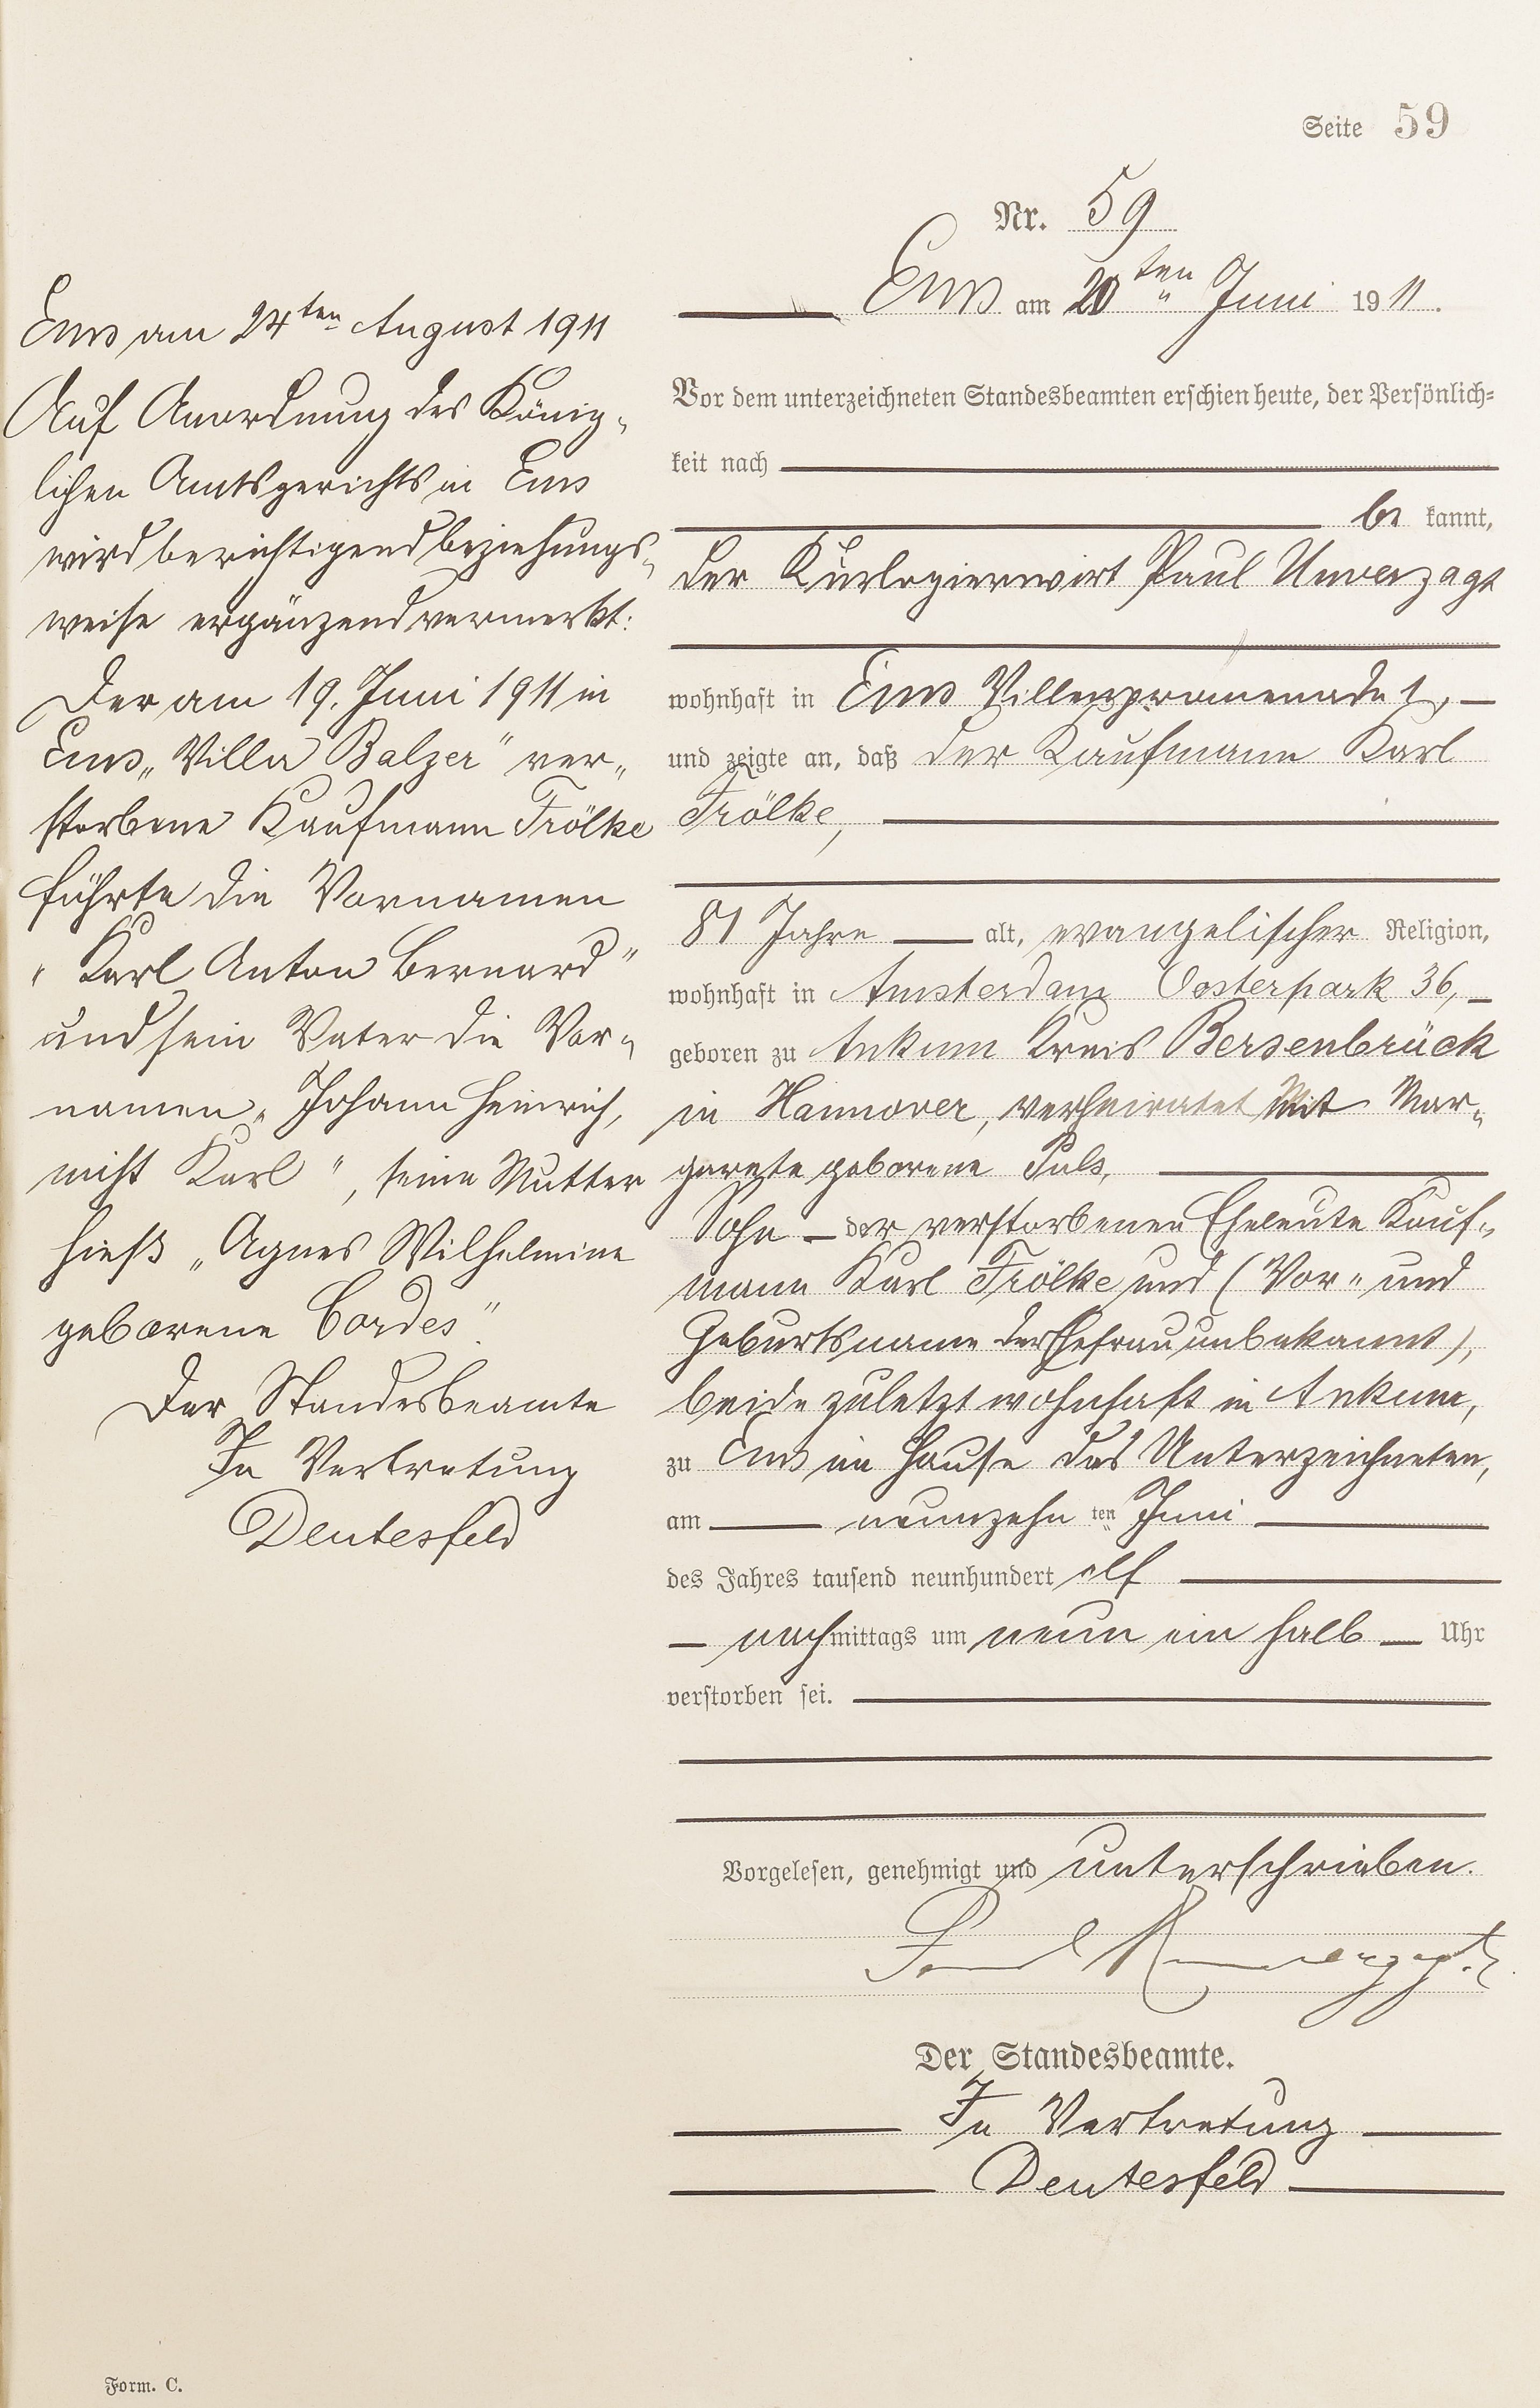 Seite 59
Nr. 59
Ems am 20ten Juni 1911.
Vor dem unterzeichneten Standesbeamten erschien heute, der Persönlich=
keit nach
be kannt,
der Kurlogierwirt Paul Unverzagt
wohnhaft in Ems Villenpromenade 1,
und zeigte an, daß der Kaufmann Karl
Frölke,
81 Jahre alt, evangelischer Religion,
wohnhaft in Amsterdam Oosterpark 36,
geboren zu Ankum Kreis Bersenbrück
in Hannover, verheiratet mit Mar„
garete geborene Puls,
Sohn der verstorbenen Eheleute Kauf„
mann Karl Frölke und (Vor„ und
Geburtsname der Ehefrau unbekannt),
beide zuletzt wohnhaft in Ankum,
zu Ems im Hause des Unterzeichneten,
am neunzehn ten Juni
des Jahres tausend neunhundert elf
nachmittags um neun ein halb Uhr
verstorben sei.
Vorgelesen, genehmigt und unterschrieben.
Paul Unverzagt.
Der Standesbeamte.
In Vertretung
Deutesfeld
Ems am 24ten August 1911
Auf Anordnung des König„
lichen Amtsgerichts in Ems
wird berichtigend beziehungs„
weise ergänzend vermerkt:
Der am 19. Juni 1911 in
Ems „Villa Balzer" ver„
storbene Kaufmann Frölke
führte die Vornamen
„Karl Anton Bernard"
und sein Vater die Vor„
namen „Johann Heinrich,
nicht Karl", seine Mutter
hieß „Agnes Wilhelmine
geborene Cordes".
Der Standesbeamte
In Vertretung
Deutesfeld
Form. C.